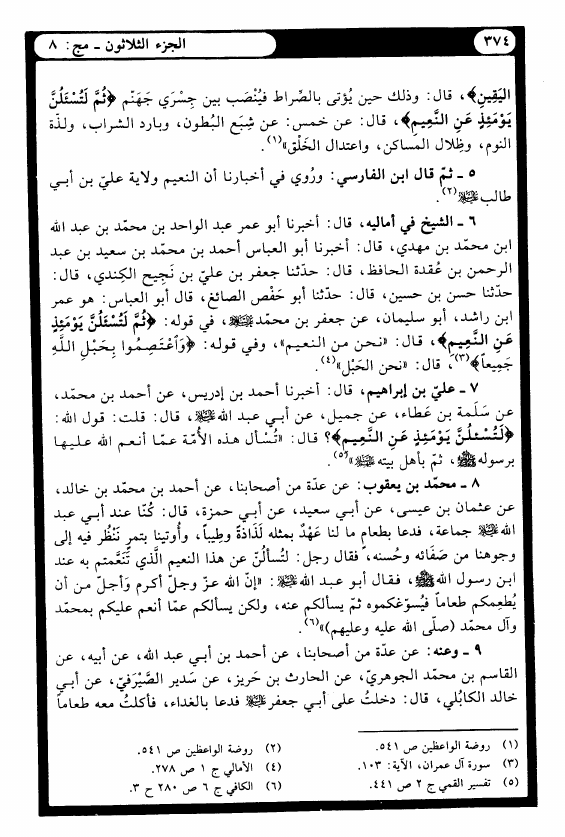 ٣٧٤
الجزء الثلاثون ـ مج: ٨
اليَقينِ﴾، قال: وذلك حين يُؤتى بالصِّراط فيُنْصَب بين جِسْرَي جَهَنّم ﴿ثُمَّ لَتُسْئَلُنَّ
يَوْمَئِذٍ عَنِ النَّعِيمِ﴾، قال: عن خمس: عن شِبَع البُطون، وبارد الشراب، ولذّة
النوم، وظِلال المساكن، واعتدال الخَلْق»(١).
٥ ـ ثمّ قال ابن الفارسي: ورُوي في أخبارنا أن النعيم ولاية عليّ بن أبي
طالب عليه السلام(٢).
٦ ـ الشيخ في أماليه، قال: أخبرنا أبو عمر عبد الواحد بن محمّد بن عبد الله
ابن محمّد بن مهدي، قال: أخبرنا أبو العباس أحمد بن محمّد بن سعيد بن عبد
الرحمن بن عُقدة الحافظ، قال: حدّثنا جعفر بن عليّ بن نَجيح الكِندي، قال:
حدّثنا حسن بن حسين، قال: حدّثنا أبو حَفْص الصائغ، قال أبو العباس: هو عمر
ابن راشد، أبو سليمان، عن جعفر بن محمّد عليه السلام، في قوله: ﴿ثُمَّ لَتُسْئَلُنَّ يَوْمَئِذٍ
عَنِ النَّعِيمِ﴾، قال: «نحن من النعيم»، وفي قوله: ﴿وَاعْتَصِمُوا بِحَبْلِ اللَّهِ
جَمِيعاً﴾(٣)، قال: «نحن الحَبْل»(٤).
٧ ـ عليّ بن إبراهيم، قال: أخبرنا أحمد بن إدريس، عن أحمد بن محمّد،
عن سَلَمة بن عَطاء، عن جميل، عن أبي عبد الله عليه السلام، قال: قلت: قول الله:
﴿لَتُسْئَلُنَّ يَوْمَئِذٍ عَنِ النَّعِيمِ﴾؟ قال: «تُسْأل هذه الأُمّة عمّا أنعم الله عليها
برسوله ﷺ، ثمّ بأهل بيته عليهم السلام»(٥).
٨ ـ محمّد بن يعقوب: عن عدّة من أصحابنا، عن أحمد بن محمّد بن خالد،
عن عثمان بن عيسى، عن أبي سعيد، عن أبي حمزة، قال: كُنّا عند أبي عبد
الله عليه السلام جماعة، فدعا بطعامٍ ما لنا عَهْدٌ بمثله لَذَاذةً وطِيباً، وأُوتينا بتمرٍ نَنْظُر فيه إلى
وجوهنا من صَفَائه وحُسنه، فقال رجل: لتُسألُنّ عن هذا النعيم الَّذي تَنَعَّمتم به عند
ابن رسول الله ﷺ، فقال أبو عبد الله عليه السلام: «إنّ الله عزّ وجلّ أكرم وأجلّ من أن
يُطعِمكم طعاماً فيُسوّغكموه ثمّ يسألكم عنه، ولكن يسألكم عمّا أنعم عليكم بمحمّد
وآل محمّد (صلّى الله عليه وعليهم)»(٦).
٩ ـ وعنه: عن عدّة من أصحابنا، عن أحمد بن أبي عبد الله، عن أبيه، عن
القاسم بن محمّد الجوهريّ، عن الحارث بن حَريز، عن سَدير الصَّيْرَفيّ، عن أبي
خالد الكابُلي، قال: دخلتُ على أبي جعفر عليه السلام فدعا بالغداء، فأكلتُ معه طعاماً
(١) روضة الواعظين ص ٥٤١.
(٢) روضة الواعظين ص ٥٤١.
(٣) سورة آل عمران، الآية: ١٠٣.
(٤) الأمالي ج ١ ص ٢٧٨.
(٥) تفسير القمي ج ٢ ص ٤٤١.
(٦) الكافي ج ٦ ص ٢٨٠ ح ٣.